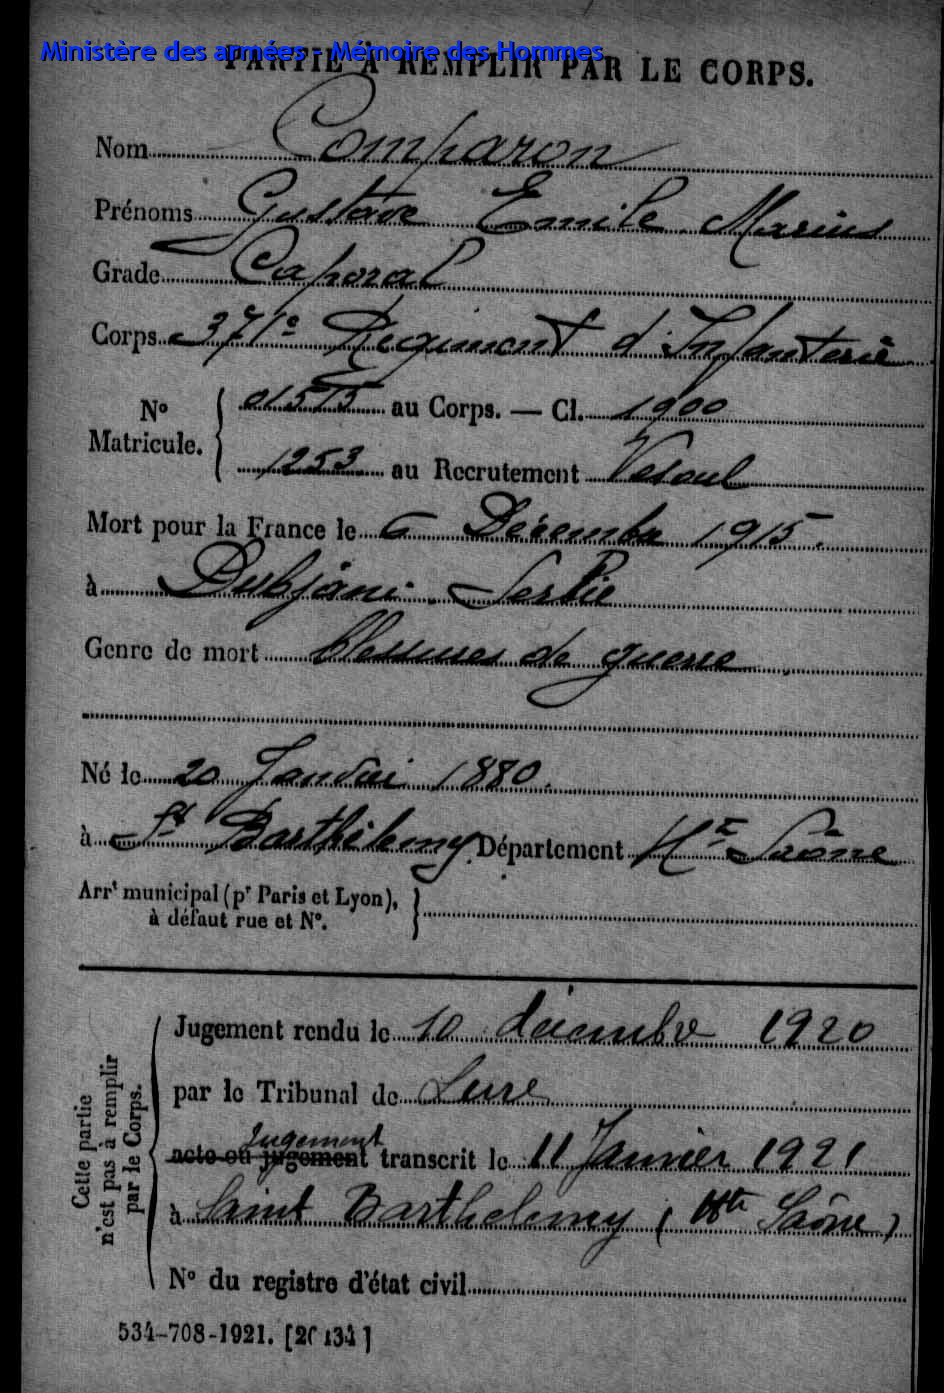 Ministère des armées - Mémoire des Hommes
PARTIE À REMPLIR PAR LE CORPS.
Nom Comparon
Prénoms Gustave Emile Marius
Grade Caporal
Corps 371e Régiment d'Infanterie
No Matricule. { 01575 au Corps. — Cl. 1900
1253 au Recrutement Vesoul
Mort pour la France le 6 Décembre 1915.
à Dubjani. Serbie
Genre de mort blessures de guerre
Né le 20 Janvier 1880.
à St Barthélemy Département Hte Saône
Arrt municipal (pr Paris et Lyon),
à défaut rue et No.
Cette partie
n'est pas à remplir
par le Corps.
Jugement rendu le 10 décembre 1920
par le Tribunal de Lure
Jugement
acte ou jugement transcrit le 11 Janvier 1921
à Saint Barthelemy (Hte Saône)
No du registre d'état civil
534-708-1921. [26434]